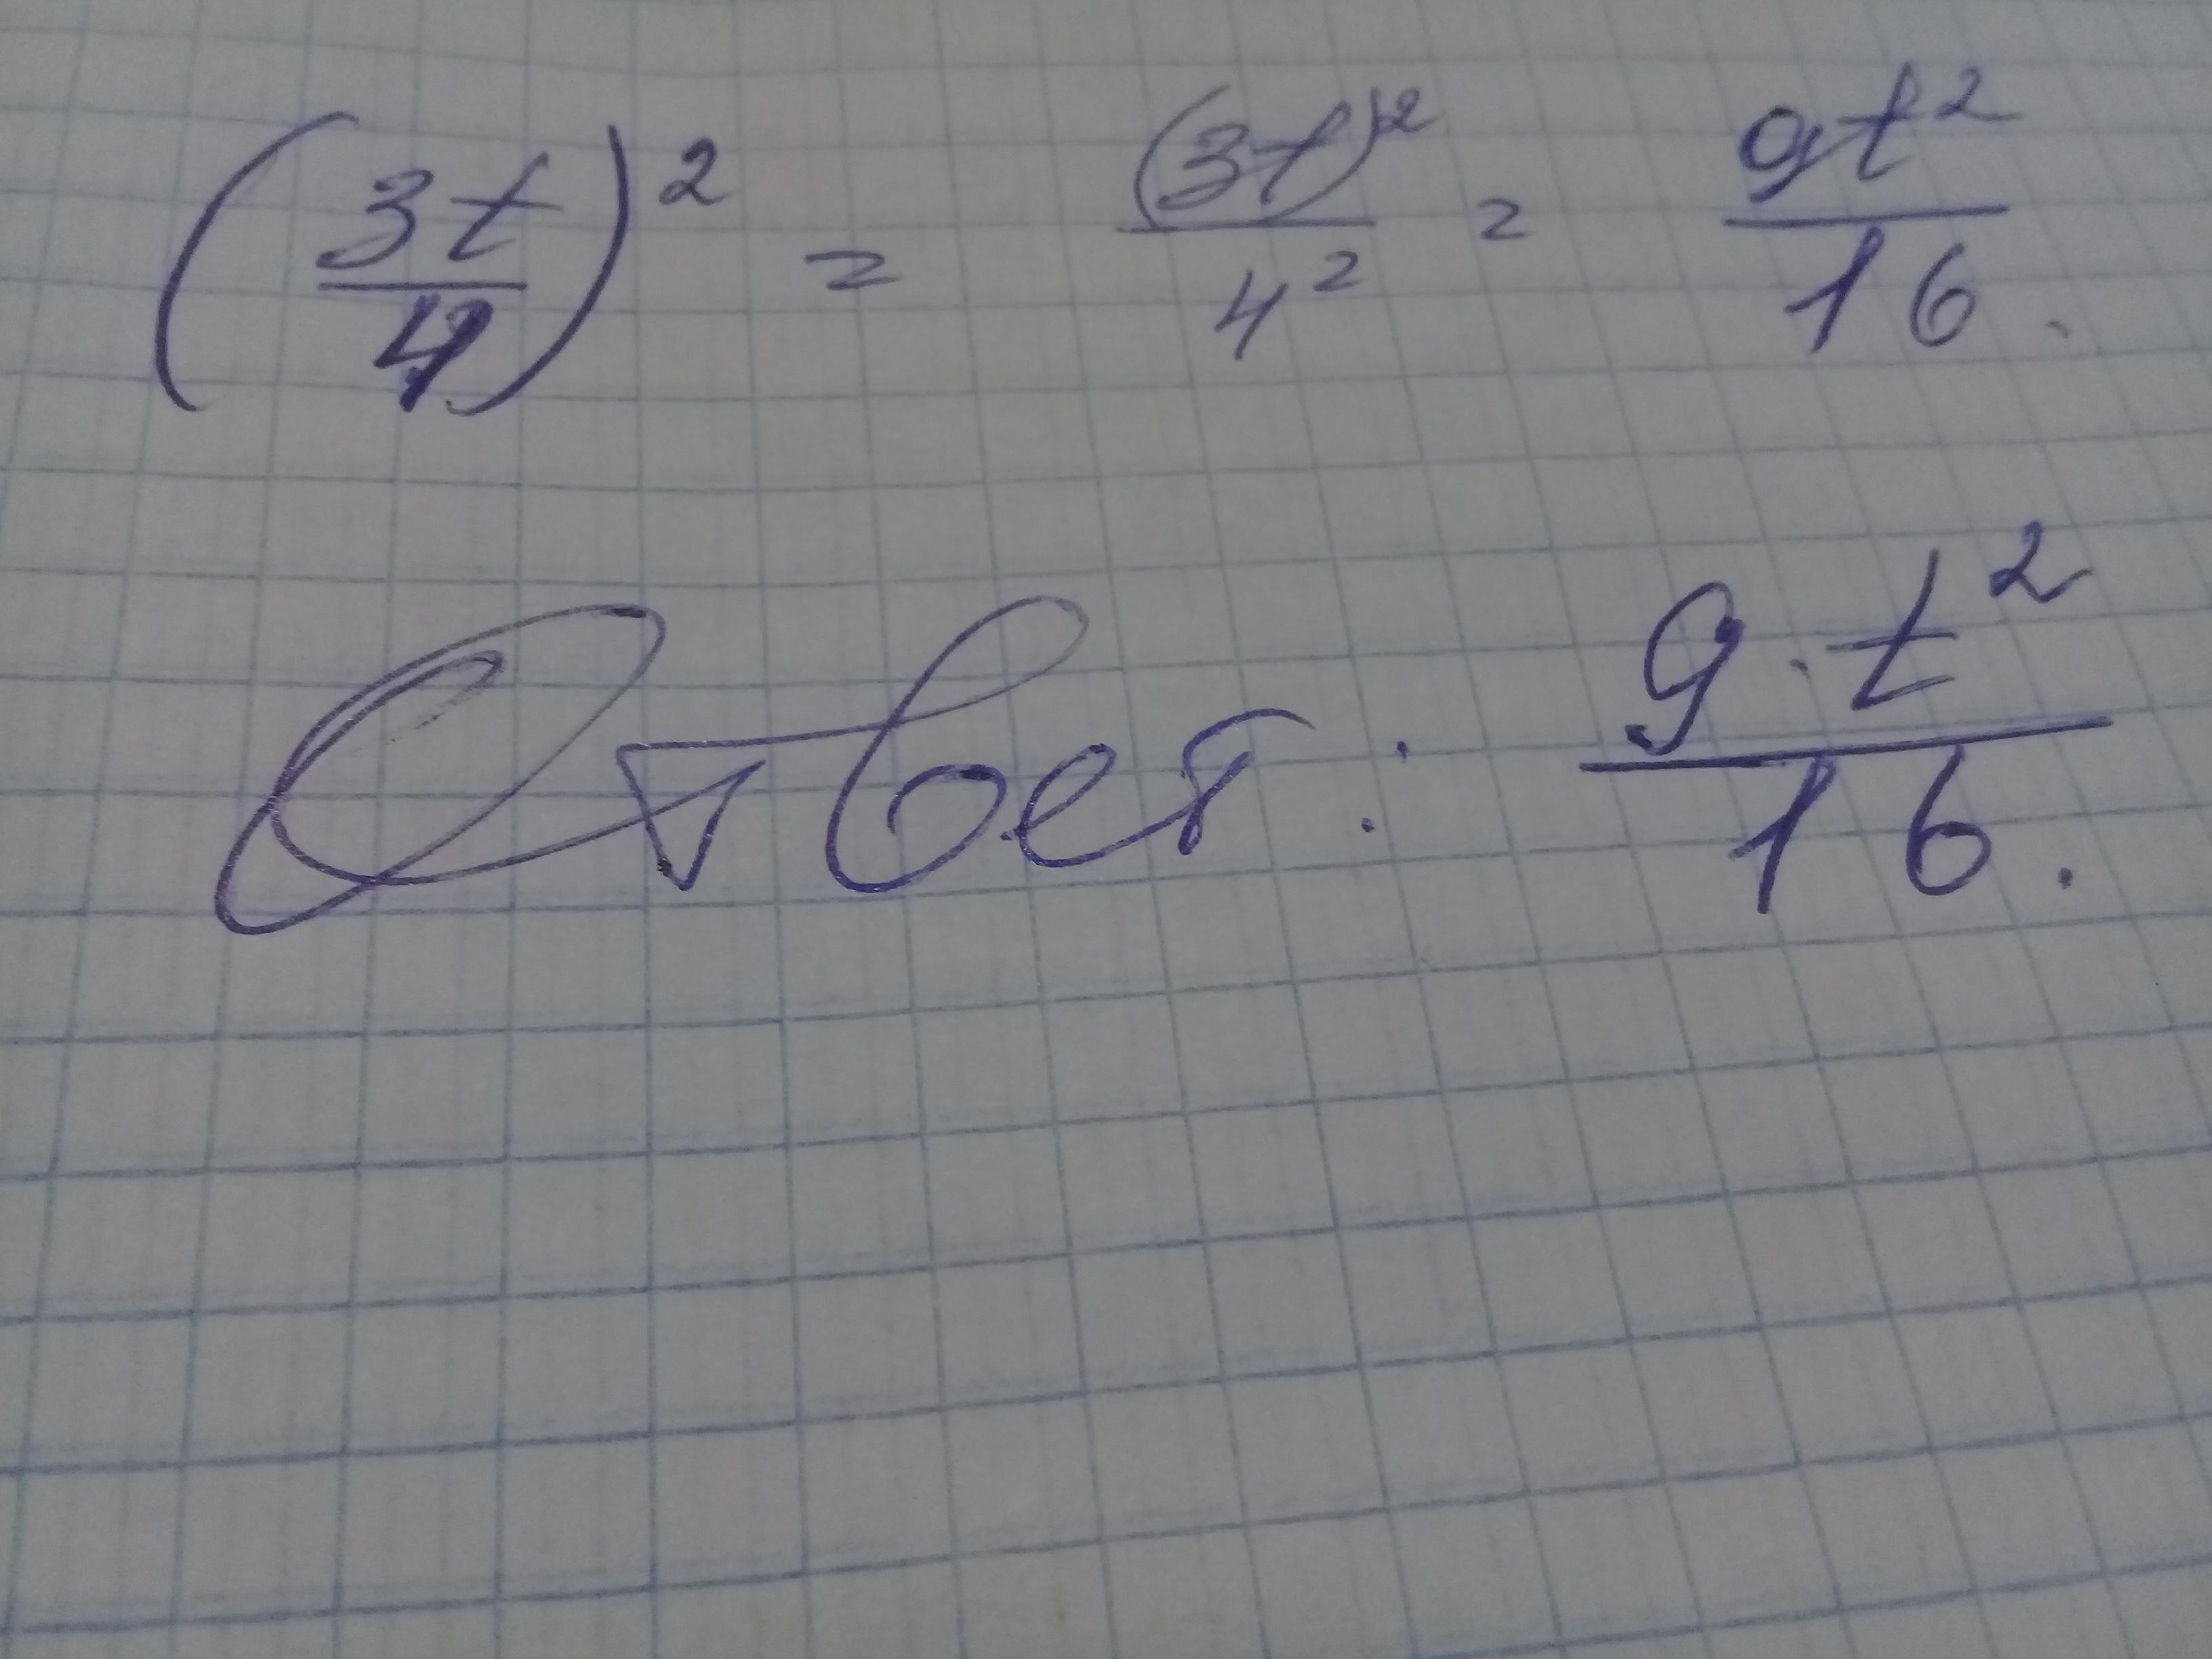 (3t/4)² = (3t)²/4² = 9t²/16.
Ответ: 9·t²/16.